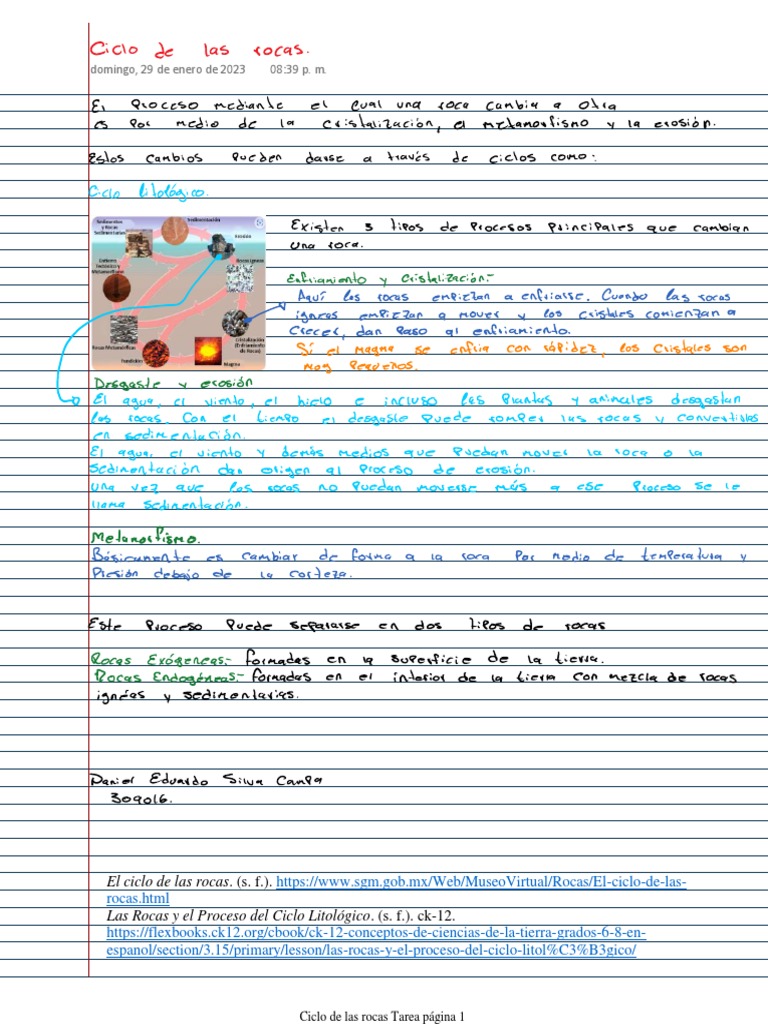 Ciclo de las rocas.
domingo, 29 de enero de 2023 08:39 p. m.
El Proceso mediante el cual una roca cambia a otra
es Por medio de la cristalización, el metamorfismo y la erosión.
Estos cambios Pueden darse a través de ciclos como:
Ciclo litológico.
Sedimentos
y Rocas
Sedimentarias
Sedimentación
Erosión
Rocas Igneas
Rocas Metamórficas
Fundición
Magma
Cristalización
(Enfriamiento
de Rocas)
Existen 3 tipos de Procesos Principales que cambian
una roca.
Enfriamiento y Cristalización:-
Aquí las rocas empiezan a enfriarse. Cuando las rocas
igneas empiezan a mover y los cristales comienzan a
Crecer, dan Paso al enfriamiento.
Sí el magma se enfria con rápidez, los Cristales son
muy Pequeños.
Desgaste y erosión
El agua, el viento, el hielo e incluso las Plantas y animales desgastan
las rocas. Con el tiempo el desgaste Puede romper las rocas y convertirlas
en sedimentación.
El agua, el viento y demás medios que Puedan mover la roca o la
Sedimentación dan origen al Proceso de erosión.
una vez que las rocas no Puedan moverse más a ese Proceso se le
llama sedimentación.
Metamorfismo.
Básicamente es cambiar de forma a la roca Por medio de temperatura y
Presión debajo de la corteza.
Este Proceso Puede separarse en dos tipos de rocas
Rocas Exógeneas:- formadas en la superficie de la tierra.
Rocas Endogéneas:- formadas en el interior de la tierra con mezcla de rocas
ignéas y sedimentarias.
Daniel Eduardo Silva Campa
309016.
El ciclo de las rocas. (s. f.). https://www.sgm.gob.mx/Web/MuseoVirtual/Rocas/El-ciclo-de-las-
rocas.html
Las Rocas y el Proceso del Ciclo Litológico. (s. f.). ck-12.
https://flexbooks.ck12.org/cbook/ck-12-conceptos-de-ciencias-de-la-tierra-grados-6-8-en-
espanol/section/3.15/primary/lesson/las-rocas-y-el-proceso-del-ciclo-litol%C3%B3gico/
Ciclo de las rocas Tarea página 1